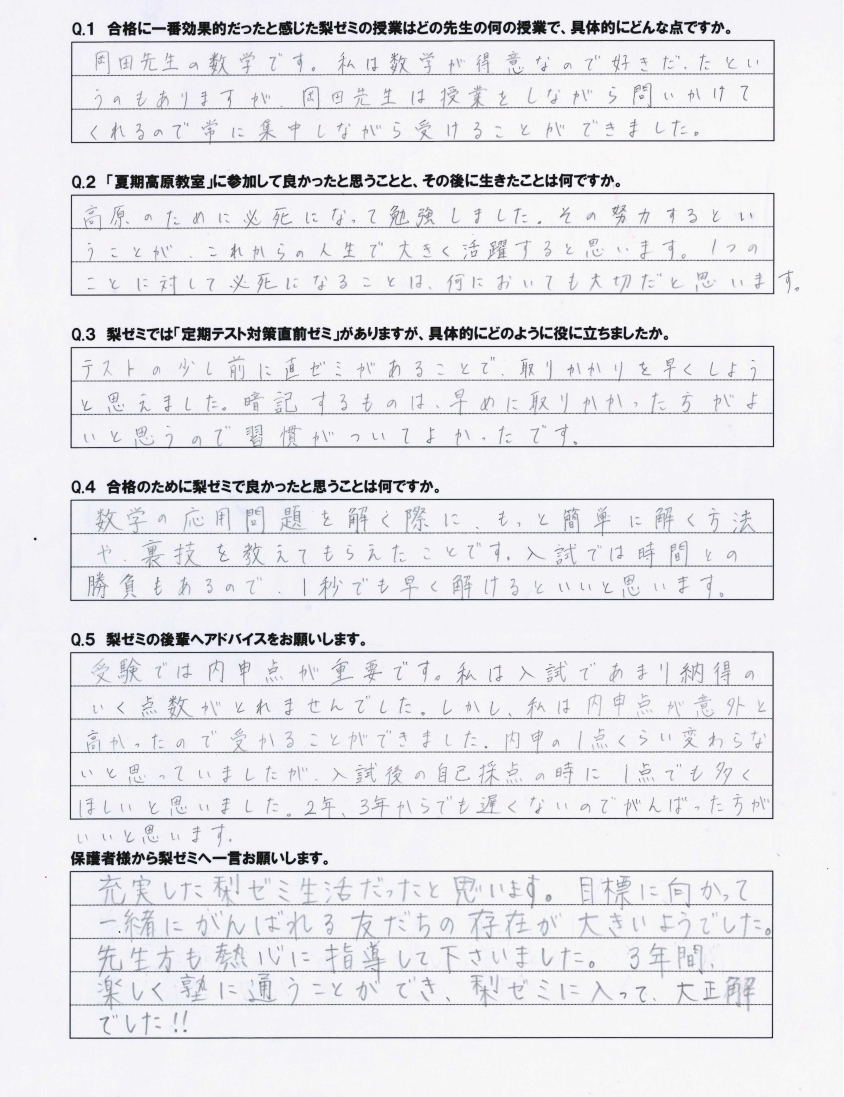 Q.1 合格に一番効果的だったと感じた梨ゼミの授業はどの先生の何の授業で、具体的にどんな点ですか。
岡田先生の数学です。私は数学が得意なので好きだったとい
うのもありますが、岡田先生は授業をしながら問いかけて
くれるので常に集中しながら受けることができました。
Q.2 「夏期高原教室」に参加して良かったと思うことと、その後に生きたことは何ですか。
高原のために必死になって勉強しました。その努力するとい
うことが、これからの人生で大きく活躍すると思います。1つの
ことに対して必死になることは、何においても大切だと思います。
Q.3 梨ゼミでは「定期テスト対策直前ゼミ」がありますが、具体的にどのように役に立ちましたか。
テストの少し前に直ゼミがあることで、取りかかりを早くしよう
と思えました。暗記するものは、早めに取りかかった方がよ
いと思うので習慣がついてよかったです。
Q.4 合格のために梨ゼミで良かったと思うことは何ですか。
数学の応用問題を解く際に、もっと簡単に解く方法
や、裏技を教えてもらえたことです。入試では時間との
勝負もあるので、1秒でも早く解けるといいと思います。
Q.5 梨ゼミの後輩へアドバイスをお願いします。
受験では内申点が重要です。私は入試であまり納得の
いく点数がとれませんでした。しかし、私は内申点が意外と
高かったので受かることができました。内申の1点くらい変わらな
いと思っていましたが、入試後の自己採点の時に1点でも多く
ほしいと思いました。2年、3年からでも遅くないのでがんばった方が
いいと思います。
保護者様から梨ゼミへ一言お願いします。
充実した梨ゼミ生活だったと思います。目標に向かって
一緒にがんばれる友だちの存在が大きいようでした。
先生方も熱心に指導して下さいました。3年間、
楽しく塾に通うことができ、梨ゼミに入って、大正解
でした!!